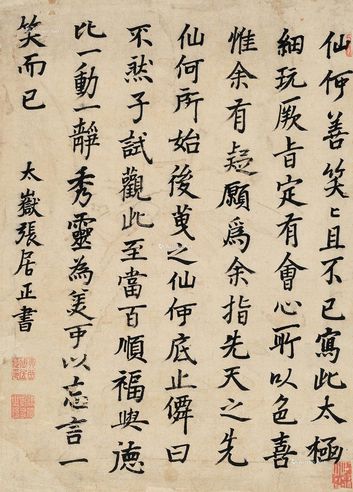 仙仲善笑〻且不已寫此太極
細玩厥旨定有會心所以色喜
惟余有疑願為余指先天之先
仙何所始後蔓之仙仲底止儛曰
不然子試觀此至當百順福與德
比一動一靜秀靈為美乎以忘言一
笑而已
太嶽張居正書